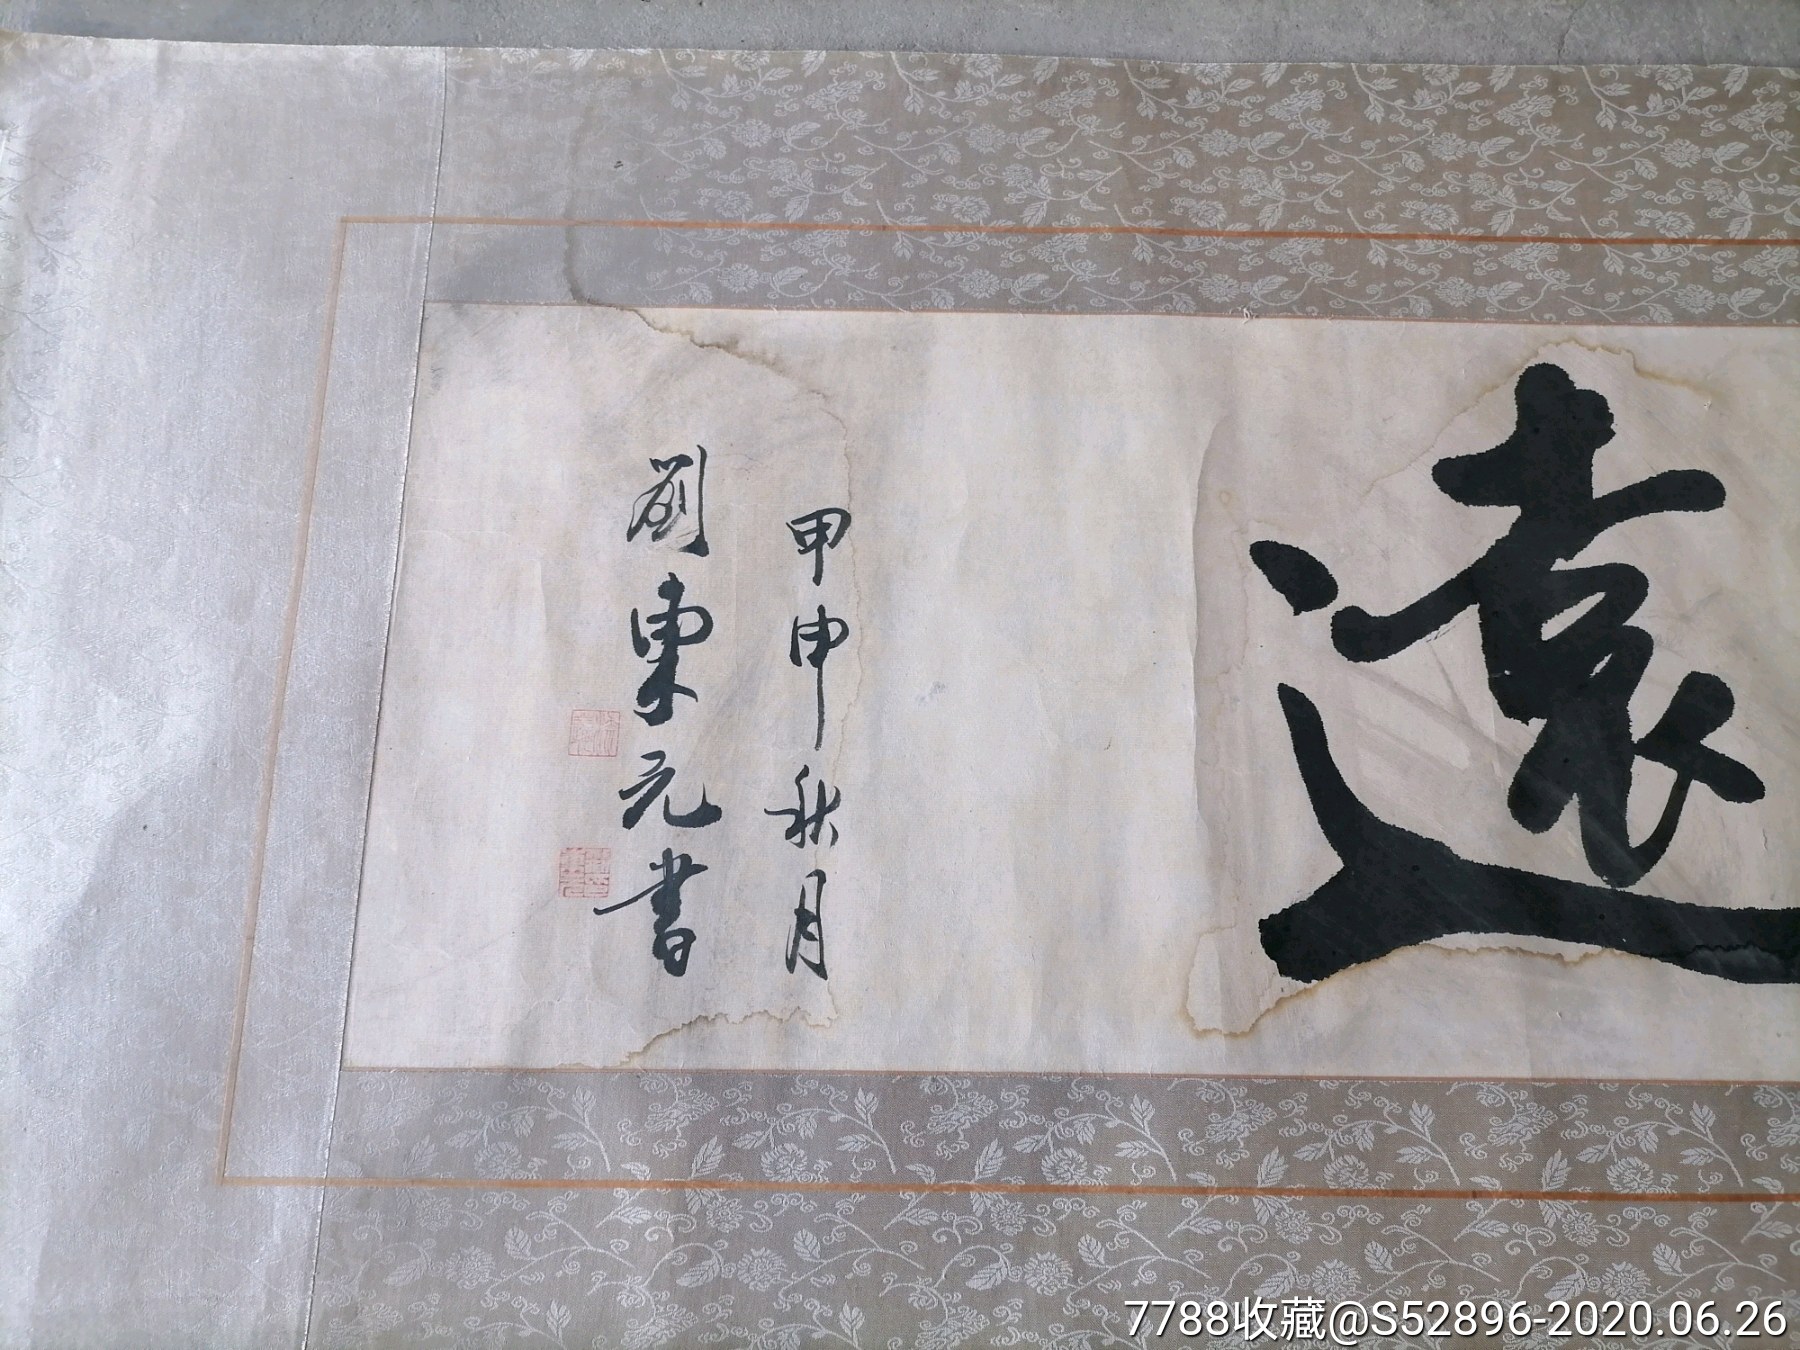 遠
甲申秋月
劉東元書
7788收藏@S52896-2020.06.26